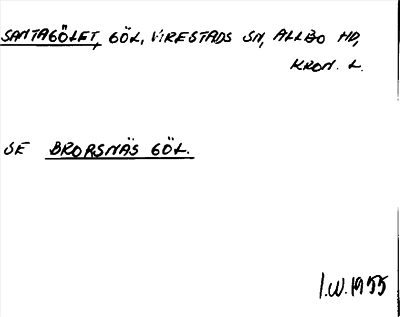 SANTAGÖLET, GÖL, VIRESTADS SN, ALLBO HD,
KRON. L.
SE BROASNÄS GÖL.
I.W. 1955